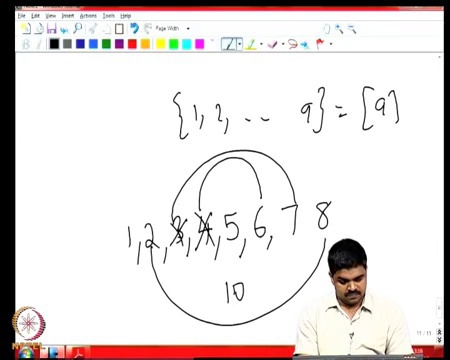 File Edit View Insert Actions Tools Help
Page Width
{1, 2, .. 9} = [9]
1, 2, 3, 4, 5, 6, 7 8
10
11 / 11
NPTEL